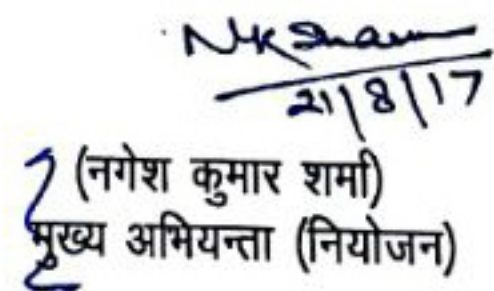 NK Sharma
21/8/17
(नगेश कुमार शर्मा)
मुख्य अभियन्ता (नियोजन)